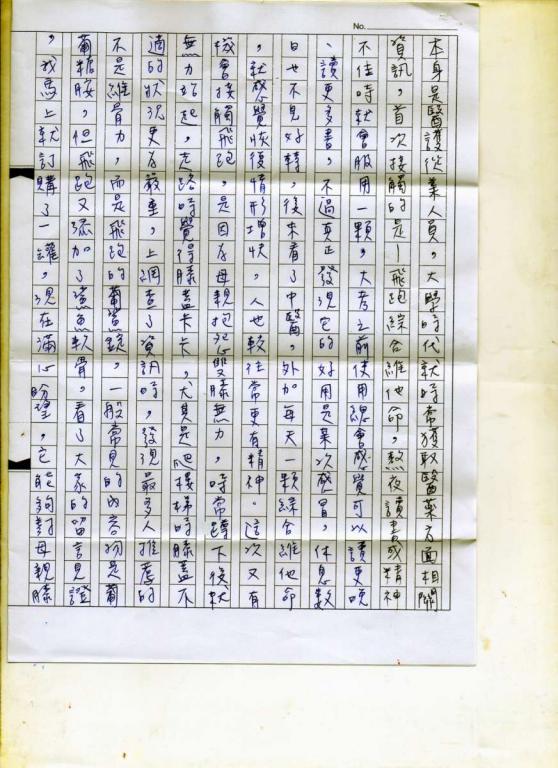 No.
本身是醫護從業人員，大學時代就時常獲取醫藥方面相關
資訊，首次接觸的是－飛跑綜合維他命，熬夜讀書或精神
不佳時就會服用一顆，大考之前使用總會感覺可以讀更晚
、讀更多書，不過真正發現它的好用是某次感冒，休息數
日也不見好轉，後來看了中醫，外加每天一顆綜合維他命
，就感覺恢復情形增快，人也較往常更有精神。這次又有
機會接觸飛跑，是因為母親抱怨雙膝無力，時常蹲下後就
無力站起，走路時覺得膝蓋卡卡，尤其是爬樓梯時膝蓋不
適的狀況更為嚴重，上網查了資訊時，發現最多人推薦的
不是維骨力，而是飛跑的葡鯊錠，一般常見的內容物是葡
葡糖胺，但飛跑又添加了鯊魚軟骨，看了大家的留言見證
，我馬上就訂購了一罐，現在滿心盼望，它能夠對母親膝